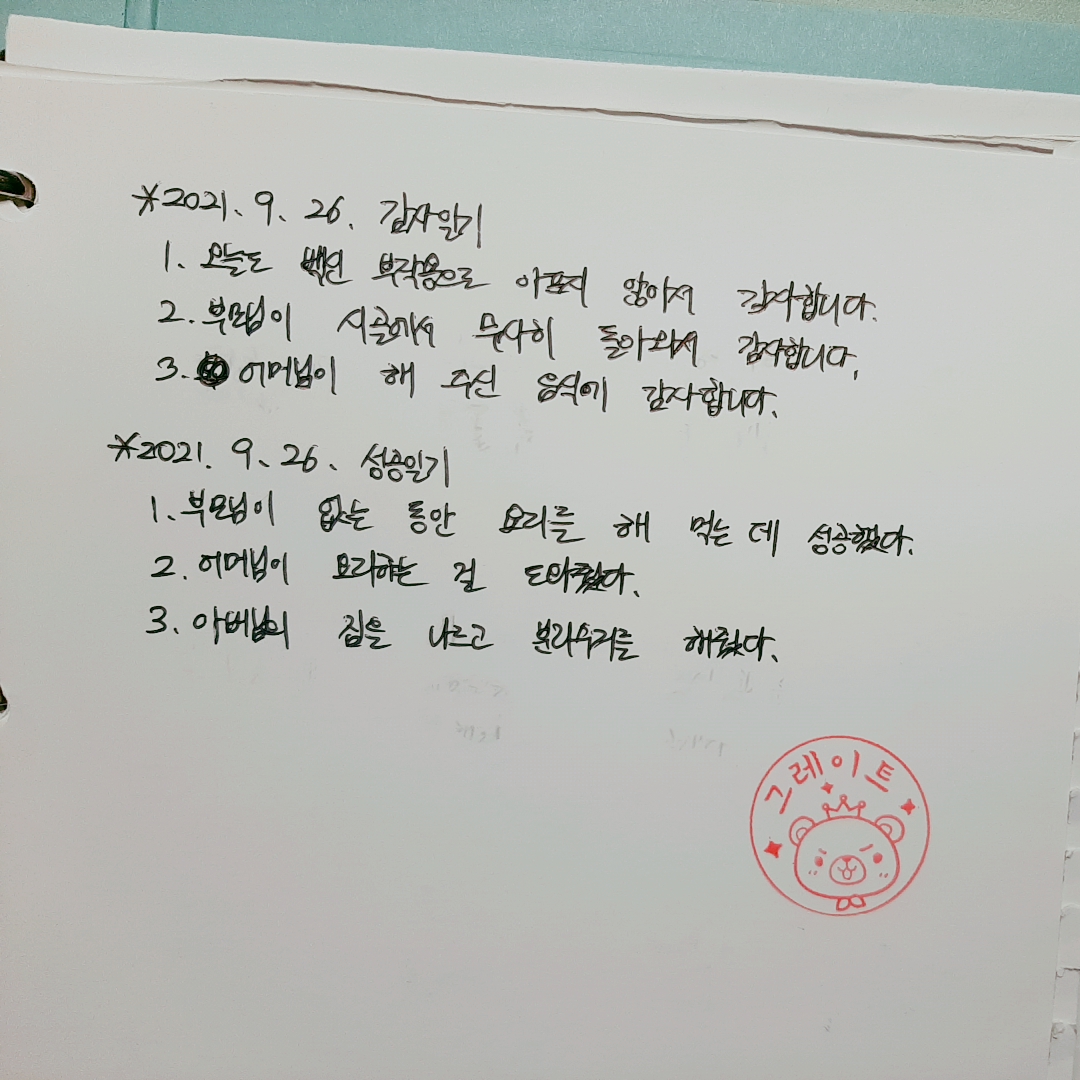 *2021. 9. 26. 감사일기
1. 오늘도 백신 부작용으로 아프지 않아서 감사합니다.
2. 부모님이 시골에서 무사히 돌아와서 감사합니다.
3. 어머님이 해 주신 음식에 감사합니다.
*2021. 9. 26. 성공일기
1. 부모님이 없는 동안 요리를 해 먹는 데 성공했다.
2. 어머님이 요리하는 걸 도와줬다.
3. 아버님의 짐을 나르고 해줬다.
그레이트